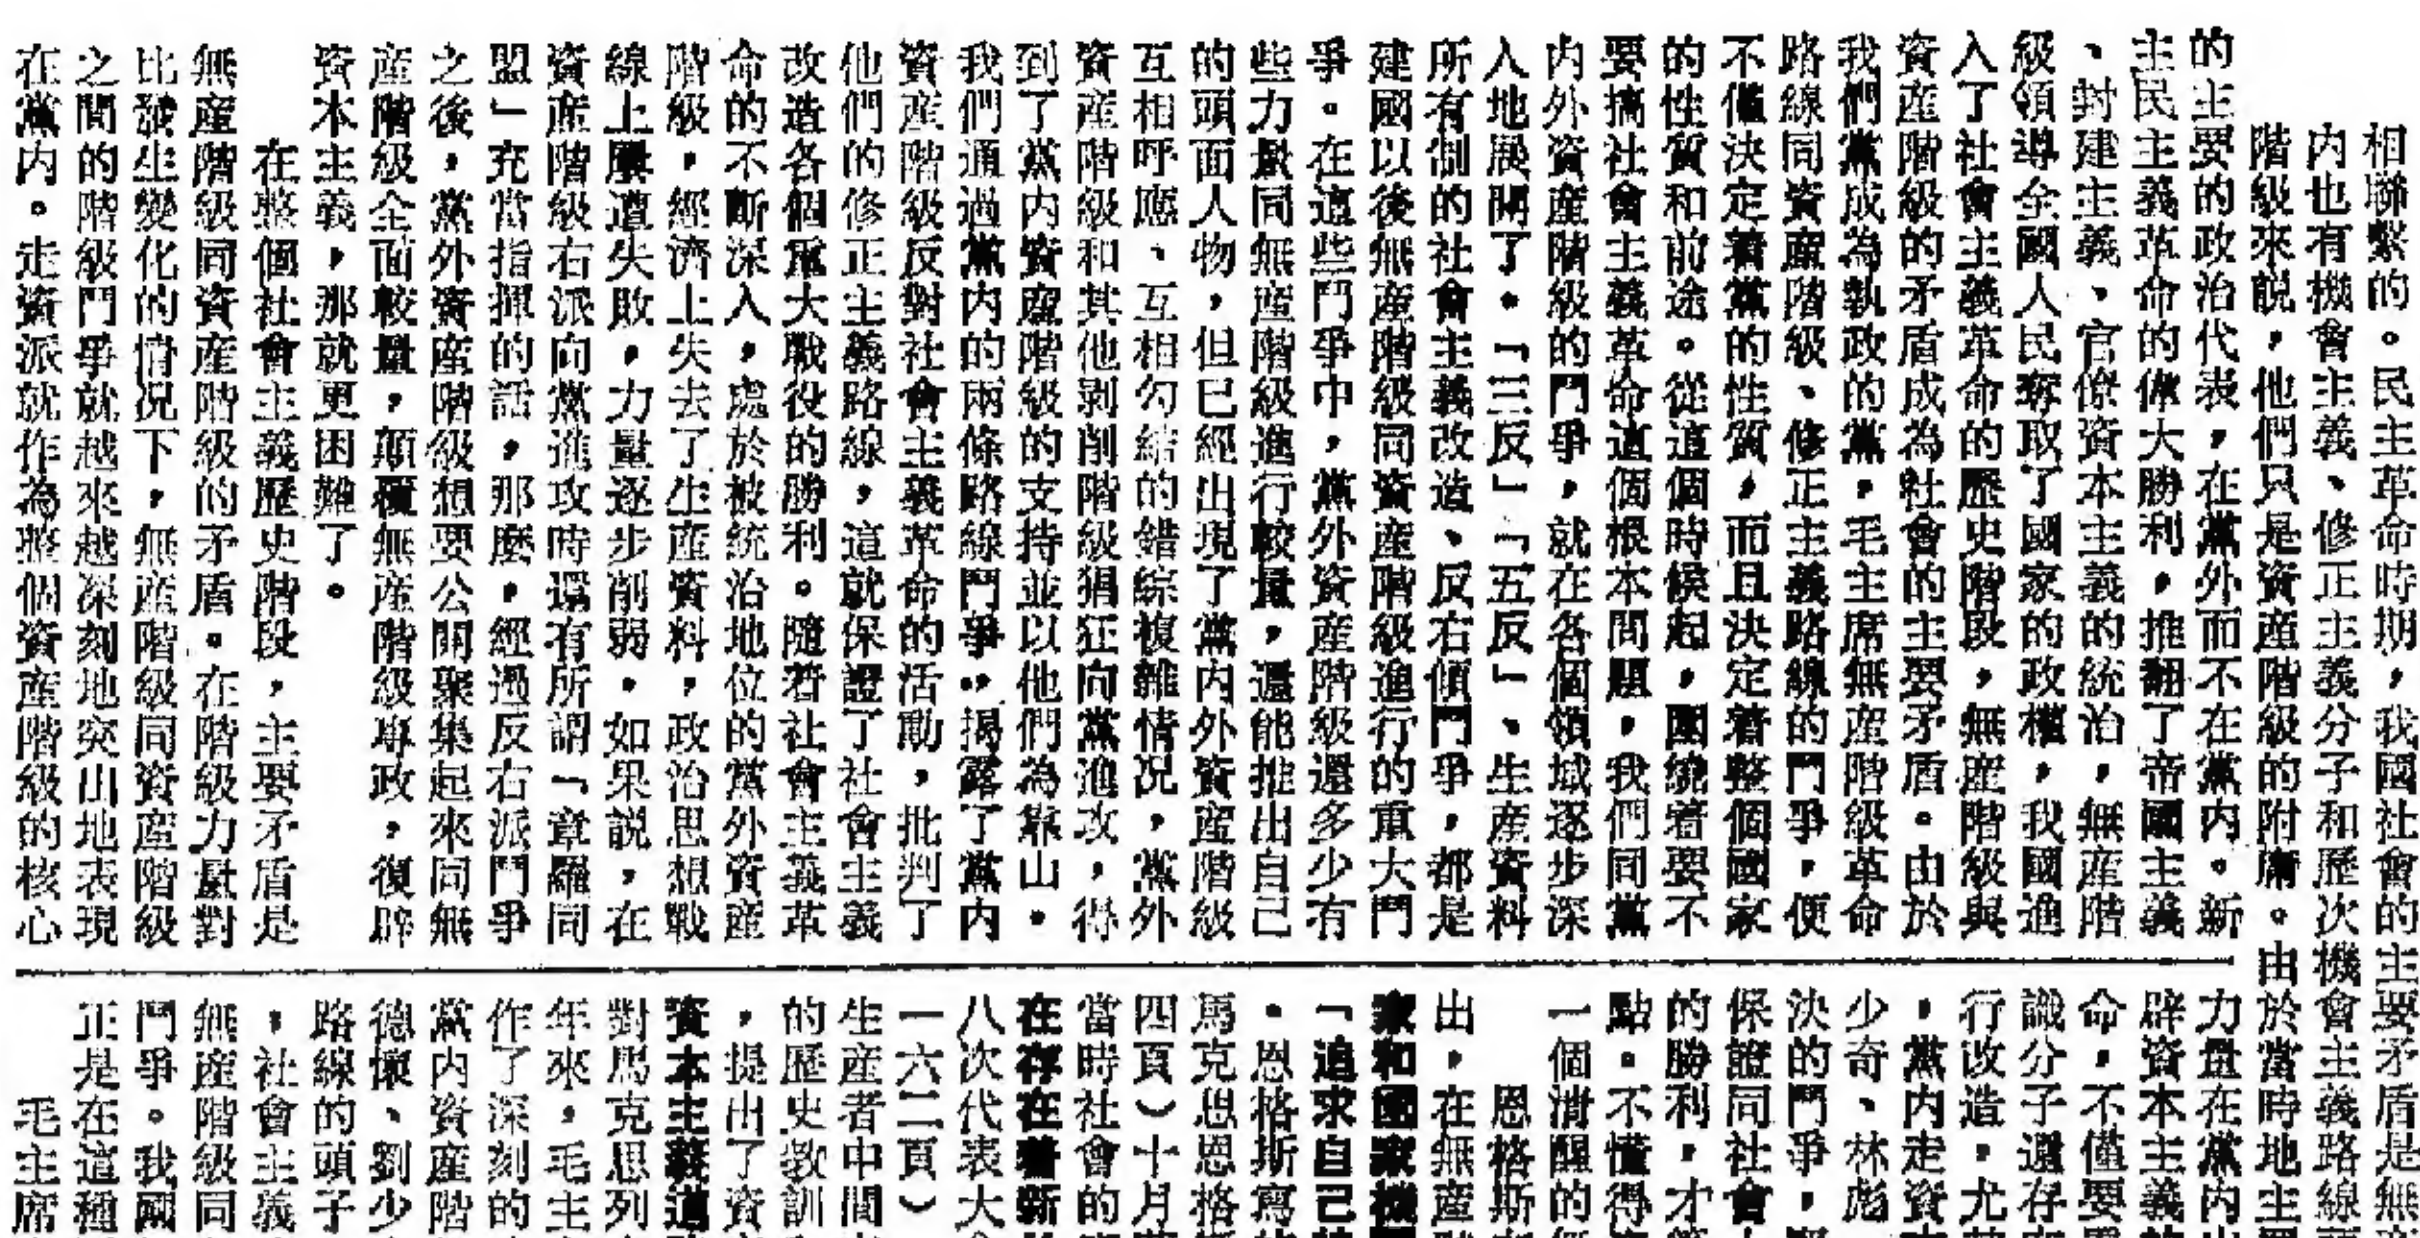 相聯繫的。民主革命時期，我國社會的主要矛盾是無
內也有機會主義、修正主義分子和歷次機會主義路線
階級來説，他們只是資産階級的附庸。由於當時地主
的主要的政治代表，在黨外而不在黨內。新
主民主義革命的偉大勝利，推翻了帝國主義
、封建主義、官僚資本主義的統治，無産階
級領導全國人民奪取了國家的政權，我國進
入了社會主義革命的歷史階段，無産階級與
資産階級的矛盾成為社會的主要矛盾。由於
我們黨成為執政的黨，毛主席無産階級革命
路線同資産階級、修正主義路線的鬥爭，便
不僅決定着黨的性質，而且決定着整個國家
的性質和前途。從這個時候起，圍繞着要不
要搞社會主義革命這個根本問題，我們同黨
內外資産階級的鬥爭，就在各個領域逐步深
入地展開了。「三反」「五反」、生産資料
所有制的社會主義改造、反右傾鬥爭，都是
建國以後無産階級同資産階級進行的重大鬥
爭。在這些鬥爭中，黨外資産階級還多少有
些力量同無産階級進行較量，還能推出自己
的頭面人物，但已經出現了黨內外資産階級
互相呼應、互相勾結的錯綜複雜情況，黨外
資産階級和其他剥削階級猖狂向黨進攻，得
到了黨内資産階級的支持並以他們為靠山。
我們通過黨內的兩條路線鬥爭，揭露了黨内
資産階級反對社會主義革命的活動，批判了
他們的修正主義路線，這就保證了社會主義
改造各個重大戰役的勝利。隨着社會主義革
命的不斷深入，處於被統治地位的黨外資産
階級，經濟上失去了生産資料，政治思想戰
線上屢遭失敗，力量逐步削弱。如果説，在
資産階級右派向黨進攻時還有所謂「章羅同
盟」充當指揮的話，那麼，經過反右派鬥爭
之後，黨外資産階級想要公開聚集起來同無
産階級全面較量，顛覆無産階級專政，復辟
資本主義，那就更困難了。
在整個社會主義歷史階段，主要矛盾是
無産階級同資産階級的矛盾。在階級力量對
比發生變化的情况下，無産階級同資産階級
之間的階級鬥爭就越來越深刻地突出地表現
在黨内。走資派就作為整個資産階級的核心
力量在黨內
辟資本主義
命，不僅要
識分子還存
行改造，尤
，黨内走資
少奇、林彪
決的鬥爭，
保證同社會
的勝利，才
點。不懂得
一個清醒的
恩格斯
出，在無産
家和國家機
「追求自己
。恩格斯寫
馬克思恩格
四頁）十月
當時社會的
在存在着新
八次代表大
一六二頁）
生産者中間
的歷史教訓
，提出了資
資本主義道
對馬克思列
年來，毛主
作了深刻的
黨内資産階
德懷、劉少
路線的頭子
，社會主義
無産階級同
鬥爭。我國
正是在這種
毛主席